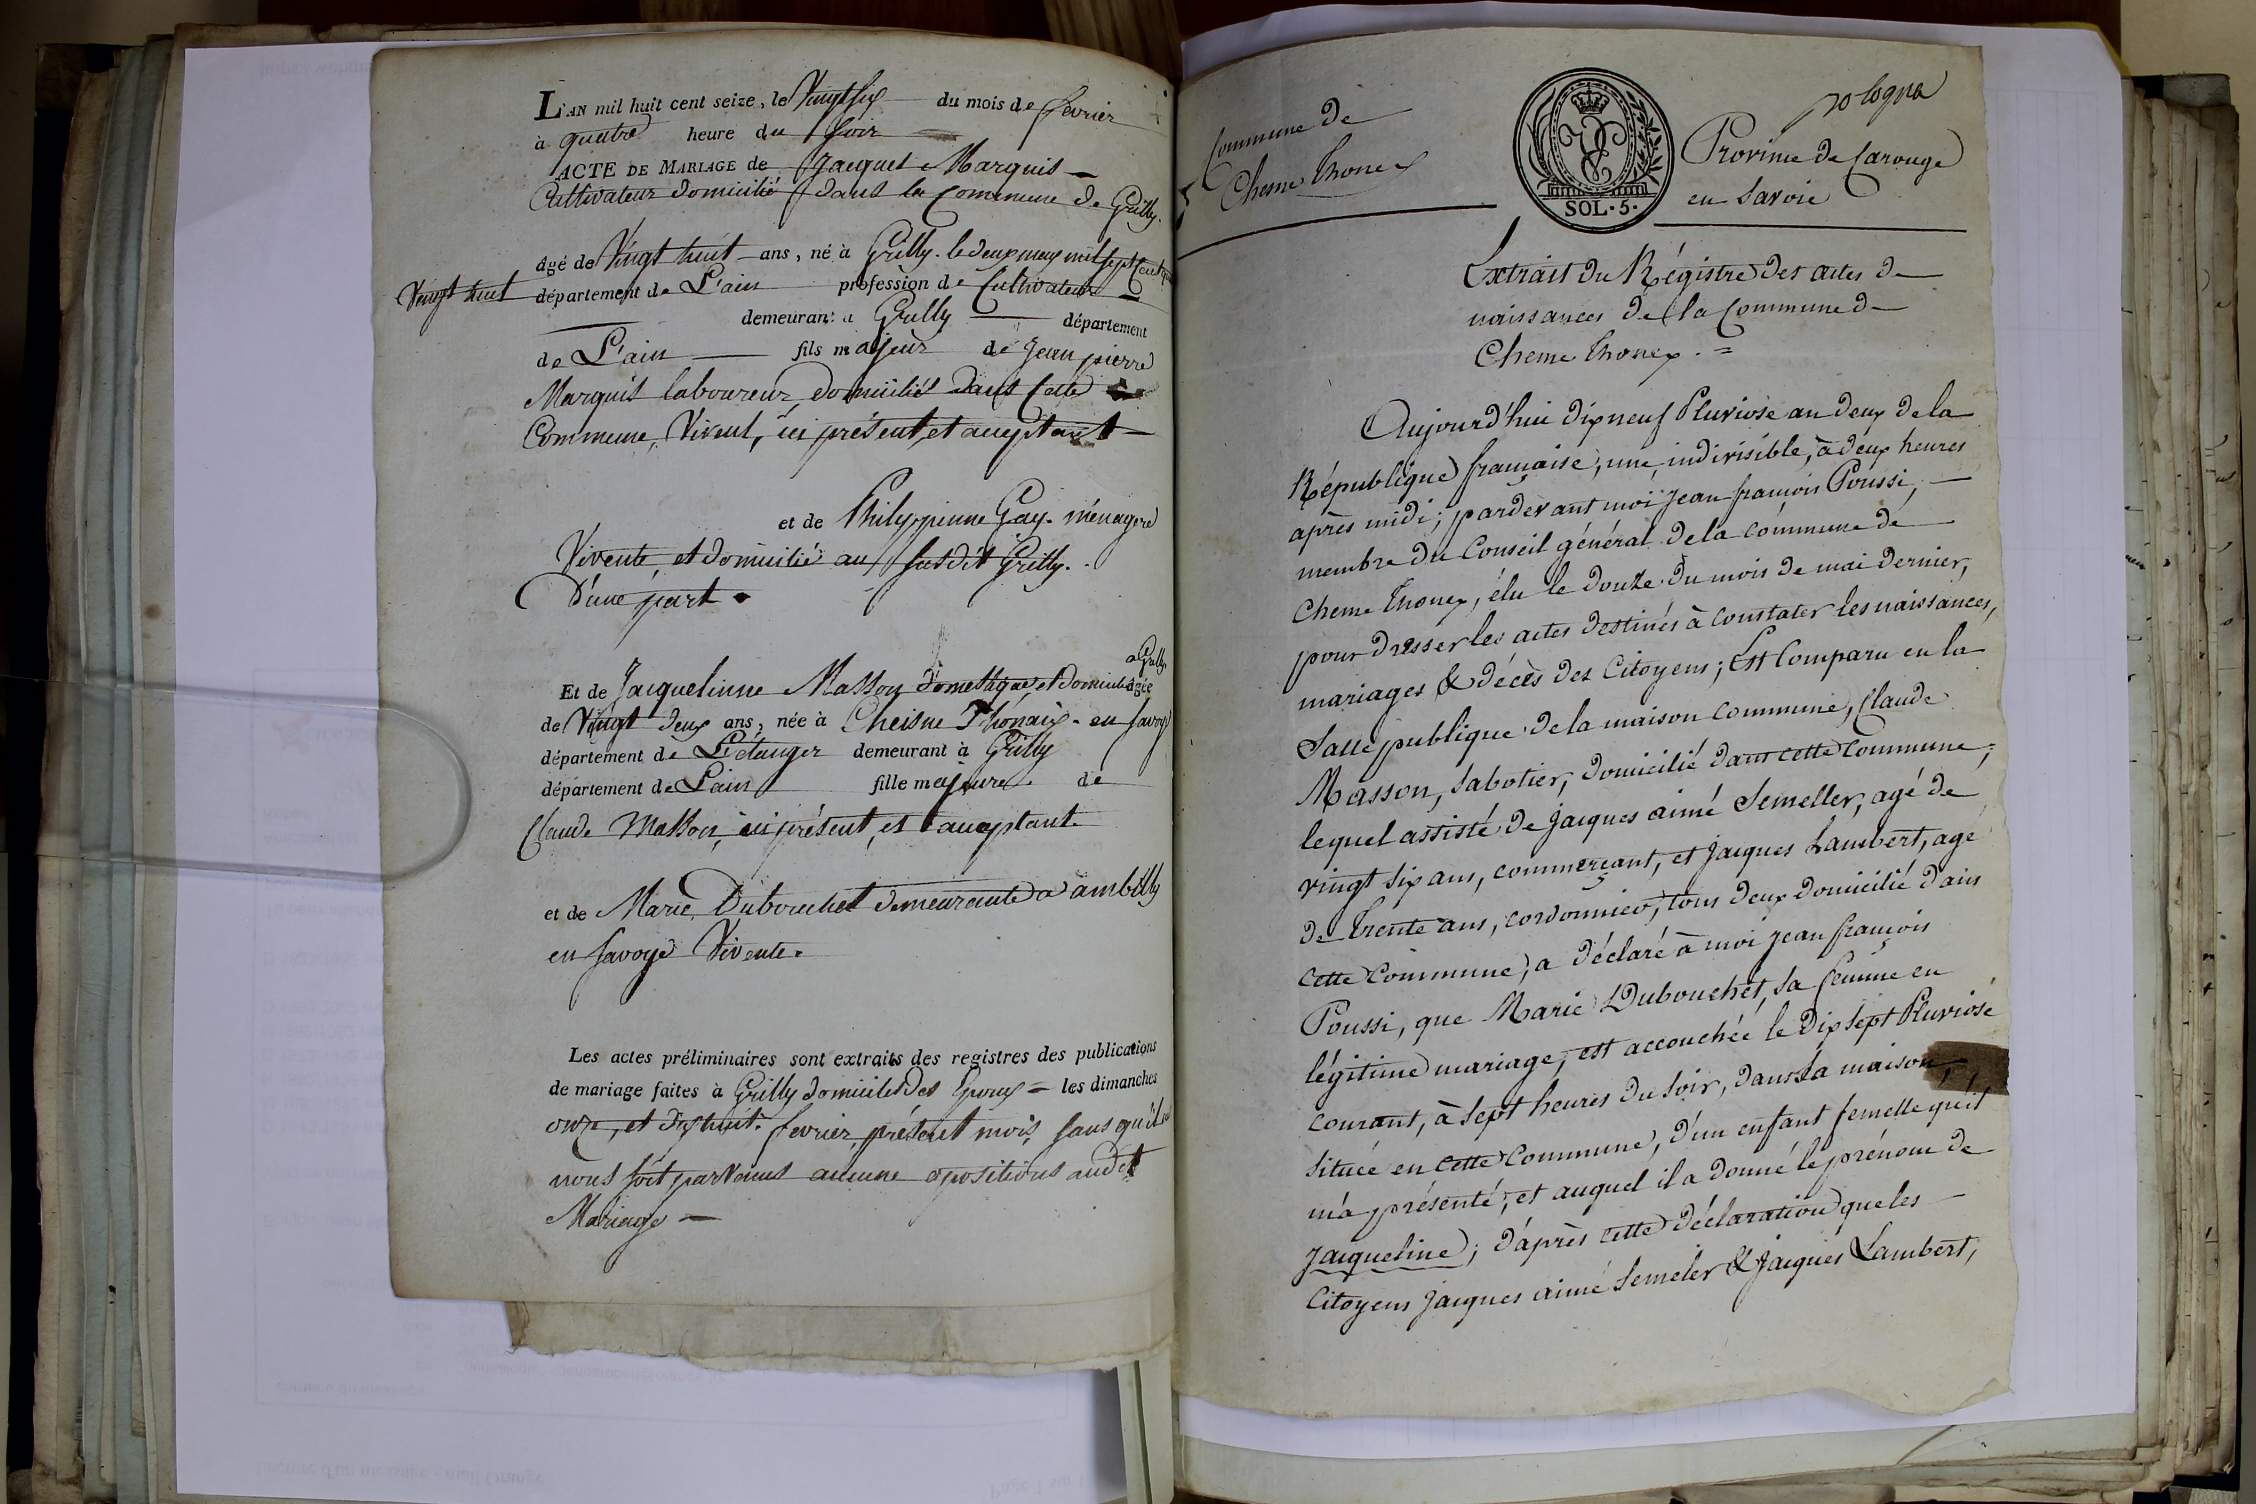 L'AN mil huit cent seize, le Vingt six du mois de fevrier
à quatre heure du soir
ACTE DE MARIAGE de Jacques Marquis
Cultivateur domicilié dans la Commune de Grilly.
agé de Vingt huit ans, né à Grilly. le deux may mil sept Cent
Vingt huit département de L'ain profession de Cultivateur
demeurant a Grilly département
de L'ain fils majeur de Jean pierre
Marquis laboureur domiciliés dans Cette
Commune, Vivent, ici présent, et aceptant
et de Philyppinne Gay. ménagere
Vivente, et domicilié au susdit Grilly.
D'une part.
a Grilly
Et de Jacquelinne Masson domestique et domicilié agée
de Vingt deux ans, née à Cheisne Thónaix. en Savoy
département de L'étanger demeurant à Grilly
département de L'ain fille majeure de
Claude Masson, ici présent, et aceptant.
et de Marie Dubouchet demeurante a ambilly
en Savoye Vivente.
Les actes préliminaires sont extraits des registres des publications
de mariage faites à Grilly domicile des Epoux = les dimanches
onze, et dixhuit. fevrier, présent mois, sans qu'il
nous soit parvenus aucune opositions audit
Mariage
Commune de
Chesne Thonex
SOL.5.
Province de Carouge
en Savoie
Extrait du Régistre des actes de
naissances de la Commune de
Chesne Thonex. =
Aujourd'hui dix neuf Pluviose an deux de la
République française, une, indivisible, à deux heures
après midi; pardevant moi Jean françois Poussi,
membre du Conseil général de la commune de
Chesne Thonex, élu le douze du mois de mai dernier,
pour dresser les actes destinés à constater les naissances,
mariages & décès des Citoyens; est Comparu en la
Salle publique de la maison commune, Claude
Masson, Sabotier, domicilié dans cette commune;
lequel assisté de Jacques aimé Semeller, agé de
vingt six ans, commerçant, et Jacques Lambert, agé
de trente ans, cordonnier, tous deux domicilié dans
cette Commune, a déclaré à moi Jean françois
Poussi, que Marie Dubouchet, sa femme en
légitime mariage, est accouchée le dix sept Pluviose
courant, à Sept heures du Soir, dans sa maison,
située en cette Commune, d'un enfant femelle qu'il
m'a présenté, et auquel il a donné le prénom de
Jacqueline; d'après cette déclaration que les
Citoyens Jacques aimé Semeler & Jacques Lambert,